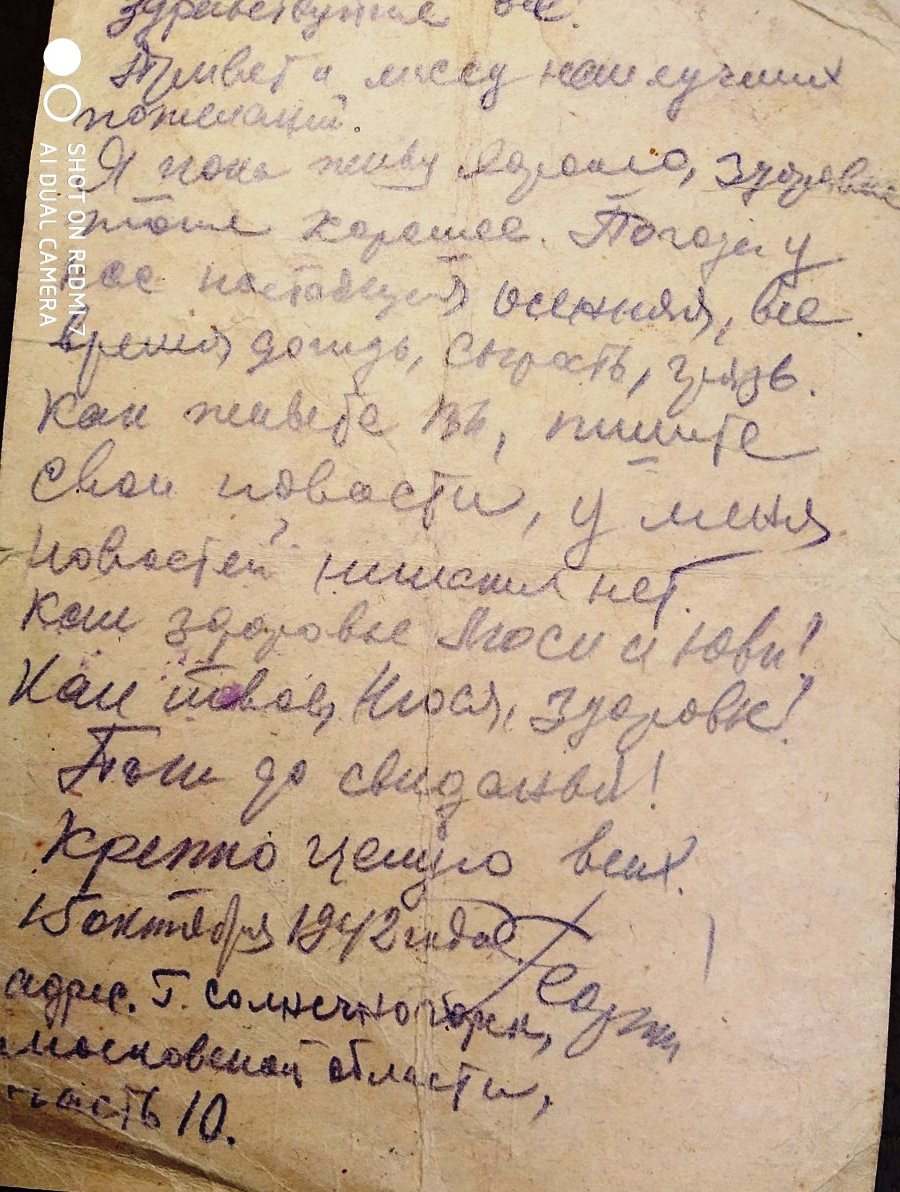 здравствуйте все.
Привет и массу наилучших
пожеланий.
Я пока живу хорошо, здоровье
тоже хорошее. Погода у
нас настоящая осенняя, все
время дождь, сырость, грязь.
Как живете вы, пишите
свои новости, у меня
новостей никаких нет.
Как здоровье Люси иЮвы?
Как твое, Нюся, здоровье?
Пока до свиданья!
Крепко целую всех.
15 октября 1942 года.
адрес. г. Солнечногорск,
Московской области,
часть 10.
SHOT ON REDMI 7
AI DUAL CAMERA